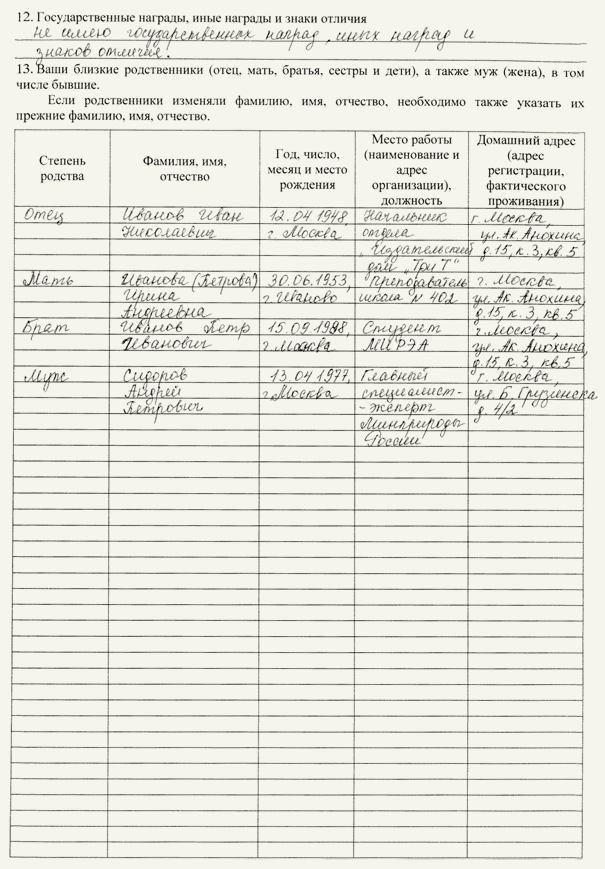 12. Государственные награды, иные награды и знаки отличия
не имею государственных наград, иных наград и
знаков отличия.
13. Ваши близкие родственники (отец, мать, братья, сестры и дети), а также муж (жена), в том
числе бывшие.
Если родственники изменяли фамилию, имя, отчество, необходимо также указать их
прежние фамилию, имя, отчество.
Степень
родства
Фамилия, имя,
отчество
Год, число,
месяц и место
рождения
Место работы
(наименование и
адрес
организации),
должность
Домашний адрес
(адрес
регистрации,
фактического
проживания)
Отец
Иванов Иван
Николаевич
12.04 1948,
г. Москва
Начальник
отдела
„Издательский
дом „Три Т“
г. Москва,
ул. Ак. Анохина,
д.15, к.3, кв. 5
Мать
Иванова (Петрова)
Ирина
Андреевна
30.06.1953,
г. Иваново
Преподаватель
школа № 402
г. Москва,
ул. Ак. Анохина,
д.15, к.3, кв.5
Брат
Иванов Петр
Иванович
15.09.1988,
г. Москва
Студент
МИРЭА
г. Москва,
ул. Ак. Анохина,
д.15, к.3, кв.5
Муж
Сидоров
Андрей
Петрович
13.04 1977,
г. Москва
Главный
специалист-
-эксперт
Минприроды
России
г. Москва,
ул. Б. Грузинска
д. 4/2